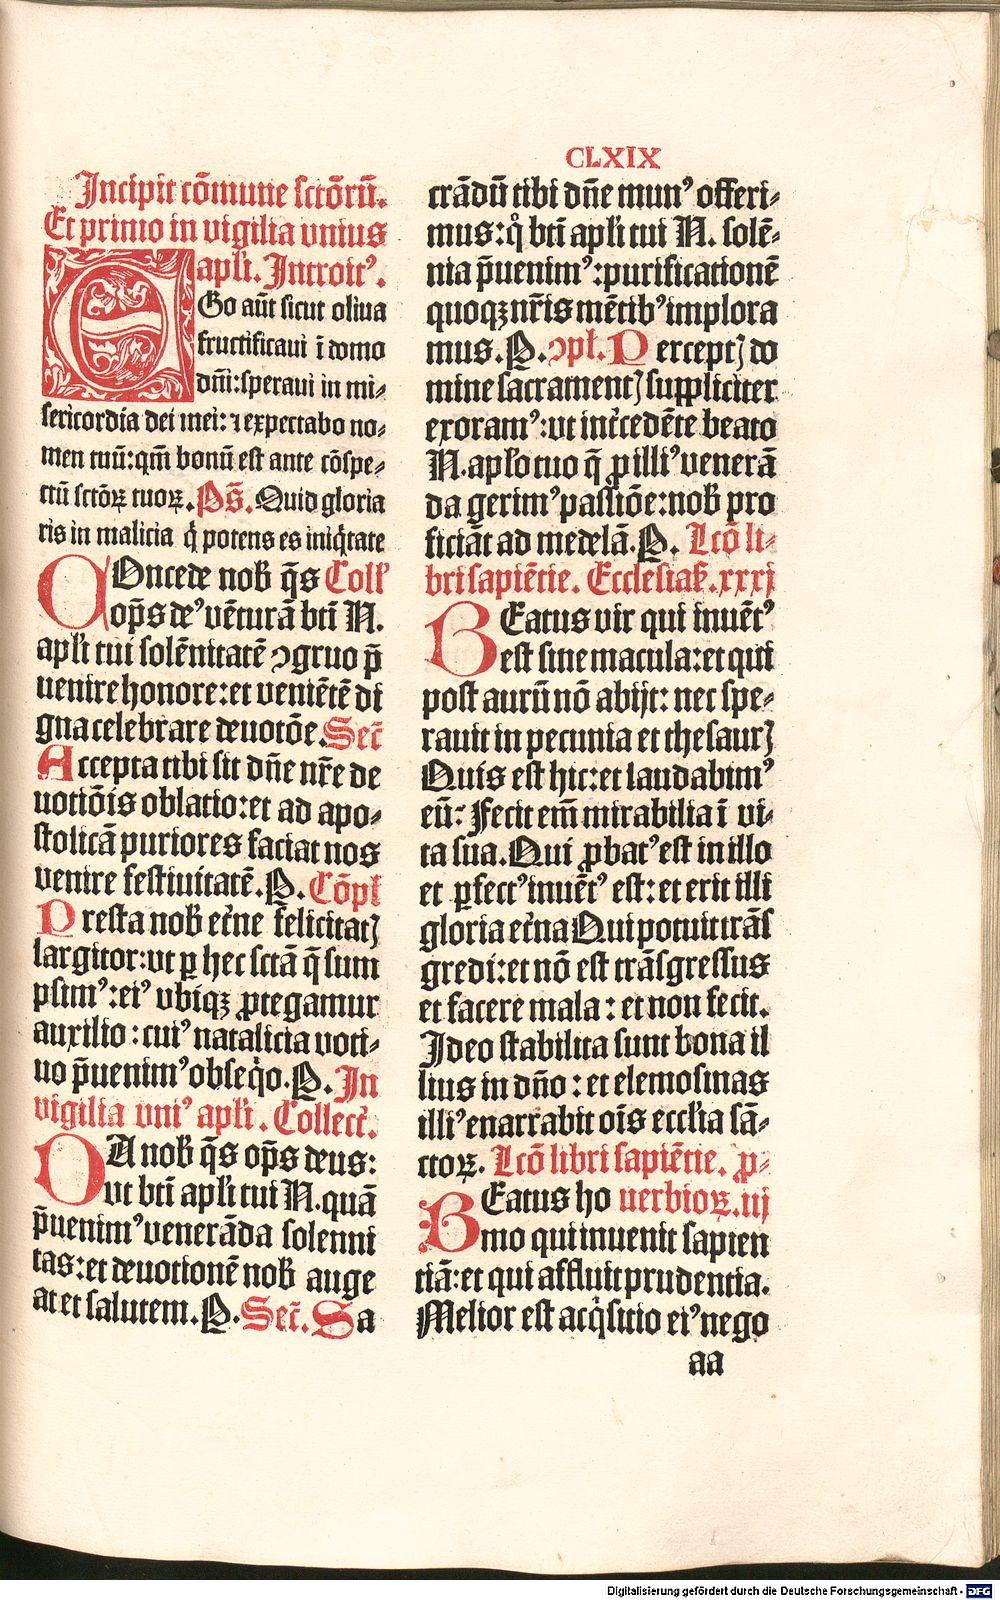 CLXIX
Incipit cōmune sctōrū.
Et primo in vigilia vnius
apl̄i. Introitꝰ.
EGo aūt sicut oliua
fructificaui ī domo
dn̄i:speraui in mi⸗
sericordia dei mei: ⁊ expectabo no⸗
men tuū:qm̄ bonū est ante cōspe⸗
ctū sctōꝝ tuoꝝ. Ps̄. Quid gloria
ris in malicia q̇ potens es iniq̇tate
COncede nob̄ q̄s Coll̄
op̄s deꝰ vētura̅ bti̅ N.
apl̄i tui solēnitatē ↄgruo p̄
uenire honore:et veniētē di
gna celebrare deuotōe. Sec̄
Accepta tibi sit dn̄e nr̄e de
uotiōis oblatio:et ad apo⸗
stolicā puriores faciat nos
venire festiuitatē.P. Cōpl̄
Presta nob̄ et̄ne felicitatꝭ
largitor:vt ꝑ hec sctā q̄ sum
psimꝰ:eiꝰ vbiqꝫ ꝓtegamur
auxilio:cuiꝰ natalicia voti⸗
uo p̄uenimꝰ obseq̇o.P. In
vigilia vniꝰ apl̄i. Collect̄.
DA nob̄ q̄s op̄s deus:
vt bti̅ apl̄i tui N.quā
p̄uenimꝰ venerāda solenni
tas:et deuotionē nob̄ auge
at et salutem.P. Sec̄. Sa
crādū tibi dn̄e munꝰ offeri⸗
mus:q̊ bti̅ apl̄i tui N. solē⸗
nia p̄uenimꝰ:purificationē
quoqꝫ nr̄is mētibꝰ implora
mus.P. ↄpl̄. Perceptꝭ do
mine sacramentꝭ suppliciter
exoramꝰ:vt int̄cedēte beato
N.apl̄o tuo q̄ ꝓ illiꝰ venerā
da gerimꝰ passiōe:nob̄ pro
ficiāt ad medelā.P. Lcō li⸗
bri sapiētie. Ecclesiaſt̄.xxxj
BEatus vir qui inuētꝰ
est sine macula:et qui
post aurū nō abijt: nec spe⸗
rauit in pecunia et thesaurꝭ
Quis est hic:et laudabimꝰ
eū: Fecit em̄ mirabilia ī vi⸗
ta sua.Qui ꝓbatꝰ est in illo
et ꝑfectꝰ inuētꝰ est:et erit illi
gloria et̄na Qui potuit trās
gredi:et nō est trāsgressus
et facere mala: et non fecit.
Ideo stabilita sunt bona il
lius in dn̄o: et elemosinas
illiꝰ enarrabit ois̄ eccl̄ia sā⸗
ctoꝝ. Lcō libri sapiētie. ꝓ⸗
BEatus ho uerbioꝝ.iij
mo qui inuenit sapien
tiā:et qui affluit prudentia.
Melior est acq̇sitio eiꝰ nego
aa
Digitalisierung gefördert durch die Deutsche Forschungsgemeinschaft - DFG